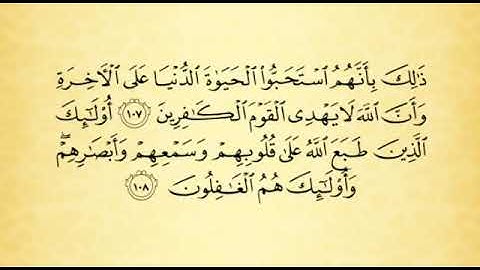 ذَٰلِكَ بِأَنَّهُمُ ٱسْتَحَبُّوا۟ ٱلْحَيَوٰةَ ٱلدُّنْيَا عَلَى ٱلْـَٔاخِرَةِ
وَأَنَّ ٱللَّهَ لَا يَهْدِى ٱلْقَوْمَ ٱلْكَـٰفِرِينَ ١٠٧ أُو۟لَـٰٓئِكَ
ٱلَّذِينَ طَبَعَ ٱللَّهُ عَلَىٰ قُلُوبِهِمْ وَسَمْعِهِمْ وَأَبْصَـٰرِهِمْ ۖ
وَأُو۟لَـٰٓئِكَ هُمُ ٱلْغَـٰفِلُونَ ١٠٨